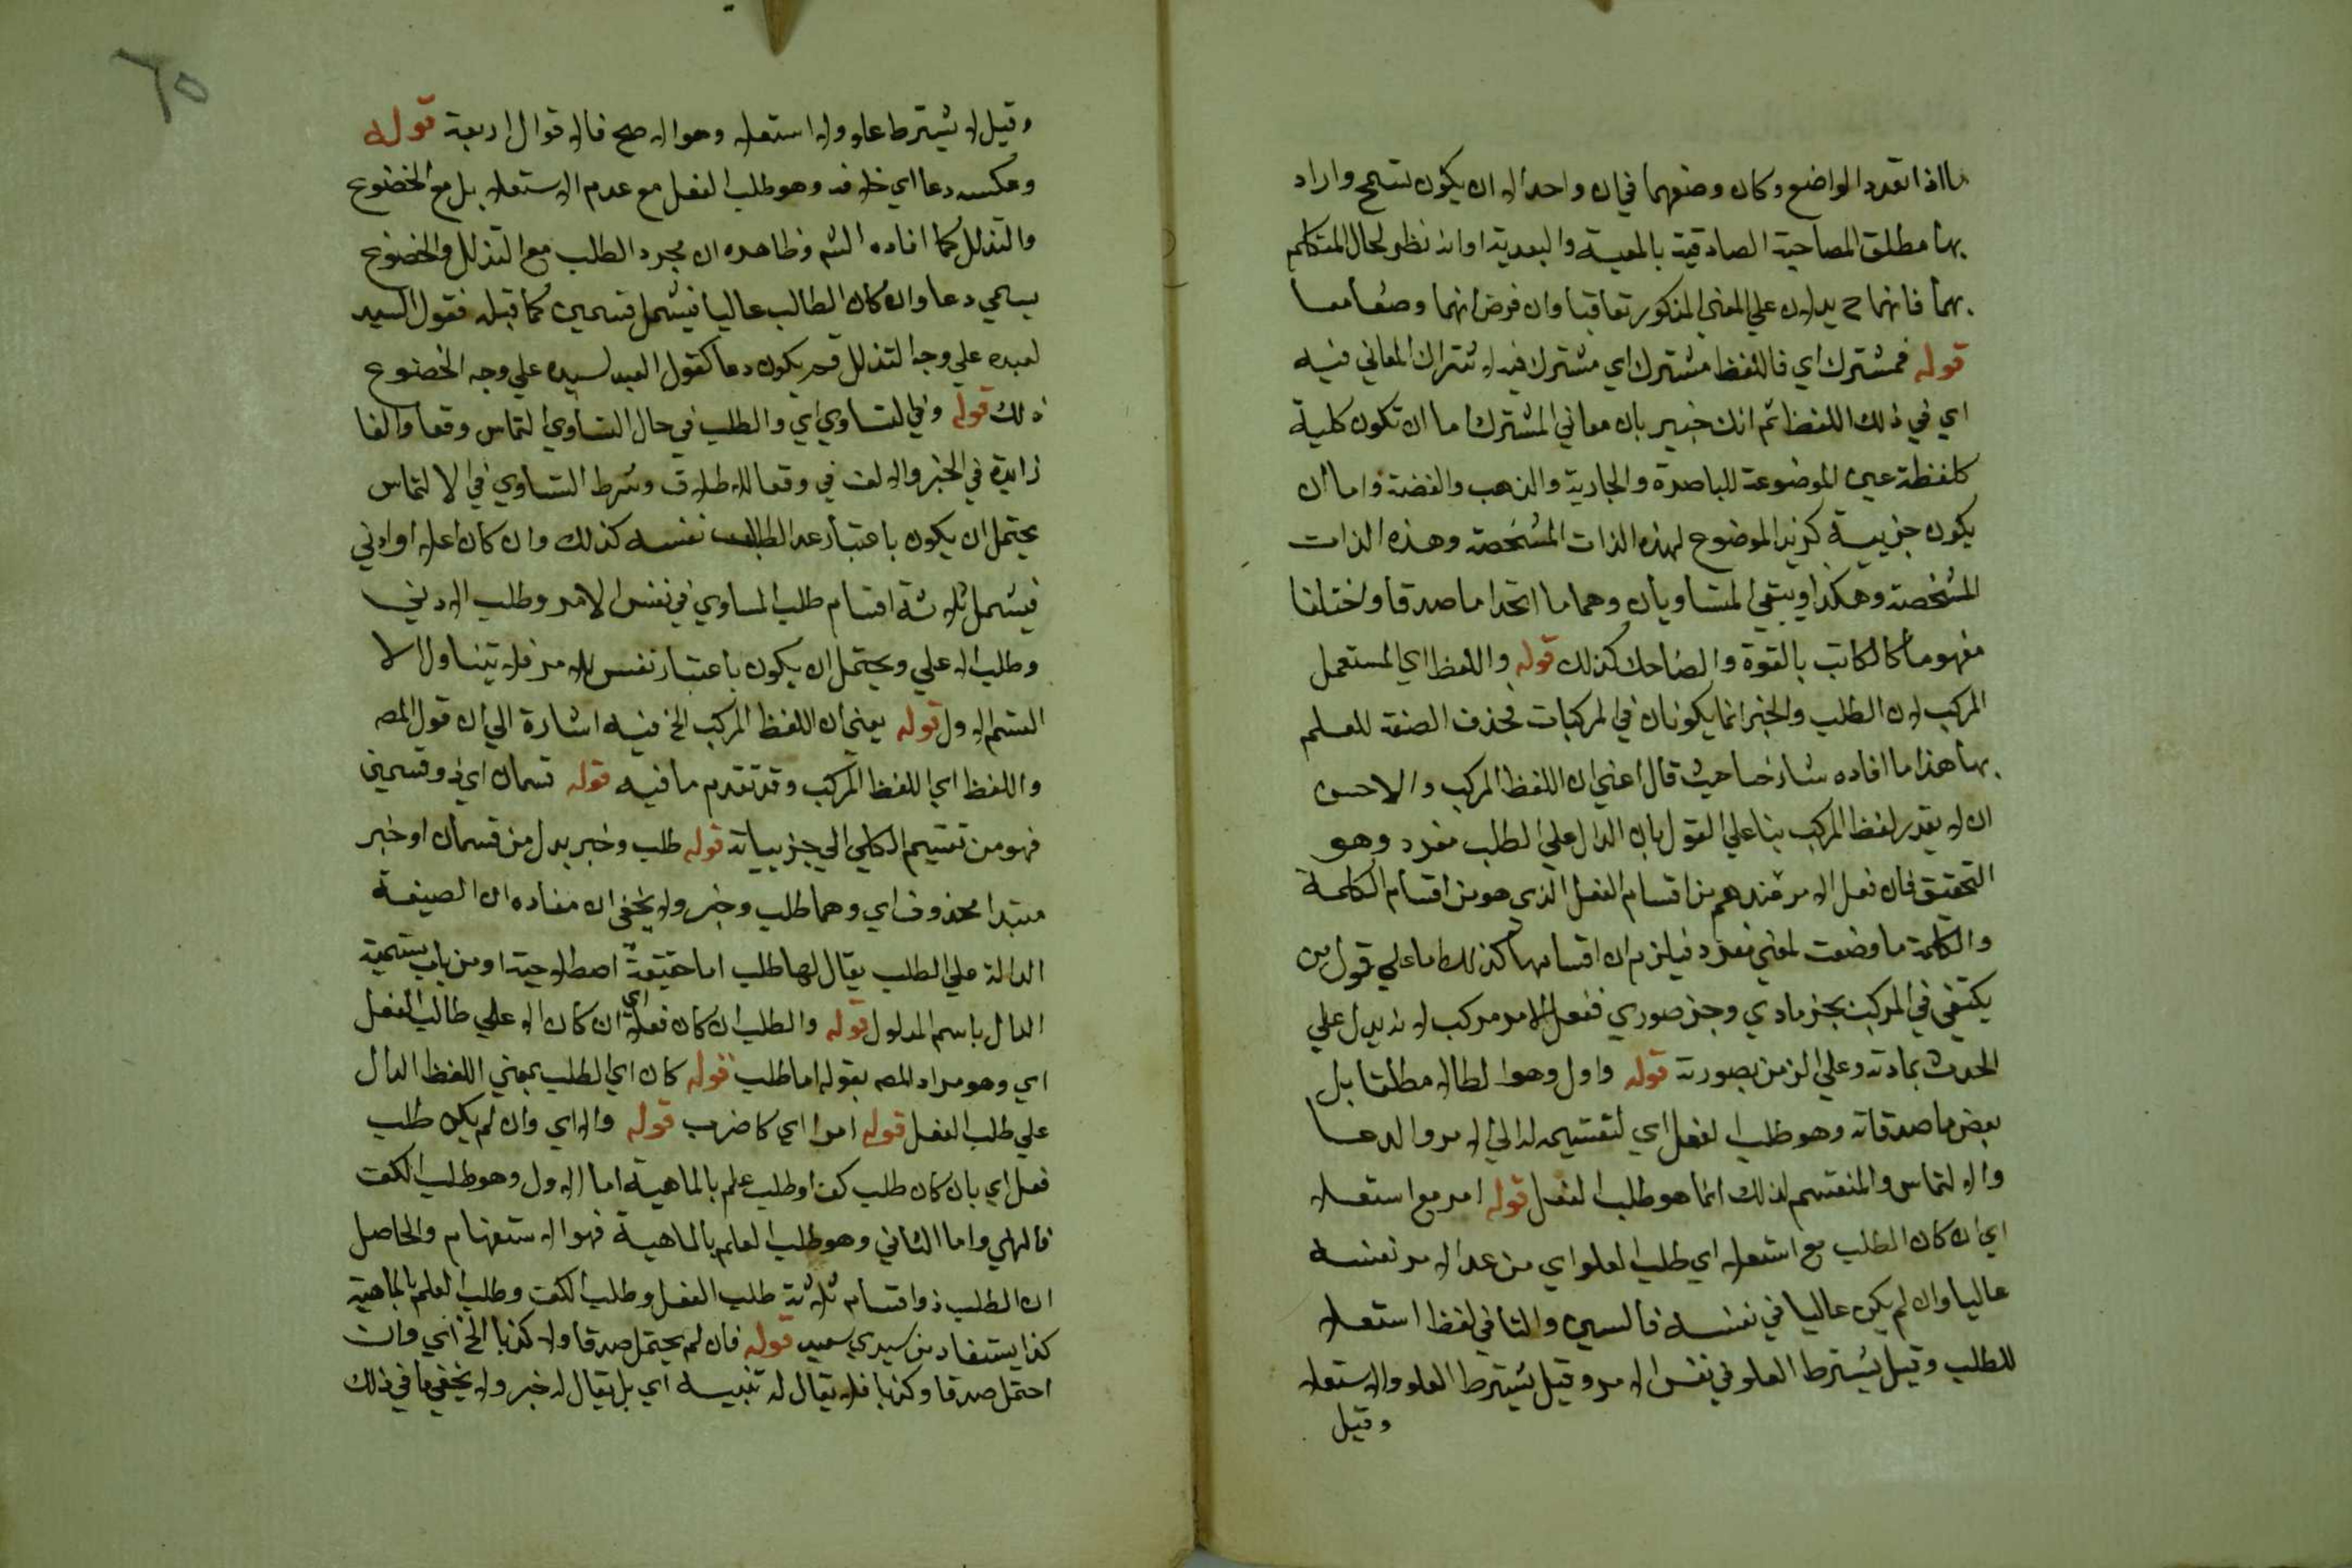 ما اذا تعدد الواضع وكان وضعهما في ان واحد الا ان يكون تسمح واراد
بها مطلق المصاحبة الصادقية بالمعية والبعدية او انه نظر لحال المتكلم
بهما فانهما ح يدلان علي المعني المذكور تعاقبا وان فرض انهما وضعا معا
قوله فمشترك اي فاللفظ مشترك اي مشترك فيه لاشتراك المعاني فيه
اي في ذلك اللفظ ثم انك خبير بان معاني المشترك اما ان تكون كلية
كلفظة عين الموضوعة للباصرة والجارية والذهب والفضة واما ان
يكون جزيية كزيد الموضوع لهذه الذات المشخصة وهذه الذات
المشخصة وهكذا ويبقي المتساويان وهما ما اتحدا ما صدقا واختلفا
مفهوما كالكاتب بالقوة والضاحك كذلك قوله واللفظ اي المستعمل
المركب لان الطلب والخبر انما يكونان في المركبات فحذف الصفة للعلم
بها هذا ما افاده شارحنا حيث قال اعني ان اللفظ المركب والاحسن
ان لا يقدر لفظ المركب بنا علي القول بان الدال علي الطلب مفرد وهو
التحقيق فان فعل الامر عندهم من اقسام الفعل الذي هو من اقسام الكلمة
والكلمة ما وضعت لمعني مفرد فيلزم ان اقسامها كذلك اما علي قول من
يكتفي في المركب بجز مادي وجز صوري ففعل الامر مركب لانه يدل علي
الحدث بمادته وعلي الزمن بصورته قوله واول وهو الطال مطلقا بل
بعض ما صدقاته وهو طلب الفعل اي لتقسيمه له الي الامر والدعا
والالتماس والمنقسم لذلك انما هو طلب الفعل قوله امر مع استعلا
اي ان كان الطلب مع استعلا اي طلب العلو اي من عد الامر نفسه
عاليا وان لم يكن عاليا في نفسه فالسين والتا في لفظ استعلا
للطلب وقيل يشترط العلو في نفس الامر وقيل يشترط العلو والاستعلا
وقيل
٦٥
وقيل لا يشترط علو ولا استعلا وهو الاصح فالاقوال اربعة قوله
وعكسه دعا اي خلافه وهو طلب الفعل مع عدم الاستعلا بل مع الخضوع
والتذلل كما افاده الشم وظاهره ان مجرد الطلب مع التذلل والخضوع
يسمي دعا وان كان الطالب عاليا فيشمل قسمين كما قبله فقول السيد
لعبده علي وجه التذلل قد يكون دعا كقول العبد لسيده علي وجه الخضوع
ذلك قوله وفي التساوي اي والطلب في حال التساوي التماس وقعا والفا
زايدة في الخبر والالف في وقعا للاطلاق وشرط التساوي في الالتماس
يحتمل ان يكون باعتبار عد الطالب نفسه كذلك وان كان اعلا او ادني
فيشمل ثلاثة اقسام طلب المساوي في نفس الامر وطلب الادني
وطلب الاعلي ويحتمل ان يكون باعتبار نفس الامر فلا يتناول الا
القسم الاول قوله يعني ان اللفظ المركب الخ فيه اشارة الي ان قول المصه
واللفظ اي اللفظ المركب وقد تقدم ما فيه قوله قسمان اي ذو قسمين
فهو من تقسيم الكلي الي جزيياته قوله طلب وخبر بدل من قسمان او خبر
مبتدا محذوف اي وهما طلب وخبر ولا يخفي ان مفاده ان الصيغة
الدالة علي الطلب يقال لها طلب اما حقيقة اصطلاحية او من باب تسمية
الدال باسم المدلول قوله والطلب ان كان فعلا اي ان كان الاعلي طالب الفعل
اي وهو مراد المصه بقوله اما طلب قوله كان اي الطلب بمعني اللفظ الدال
علي طلب الفعل قوله امرا اي كاضرب قوله والا اي وان لم يكن طلب
فعل اي بان كان طلب كف او طلب علم بالماهية اما الاول وهو طلب الكف
فالنهي واما الثاني وهو طلب العلم بالماهية فهو الاستفهام والحاصل
ان الطلب ذو اقسام ثلاثة طلب الفعل وطلب الكف وطلب العلم بالماهية
كذا يستفاد من سيدي سعيد قوله فان لم يحتمل صدقا ولا كذبا الخ اي وان
احتمل صدقا وكذبا فلا يقال له تنبيه اي بل يقال له خبر ولا يخفي ما في ذلك